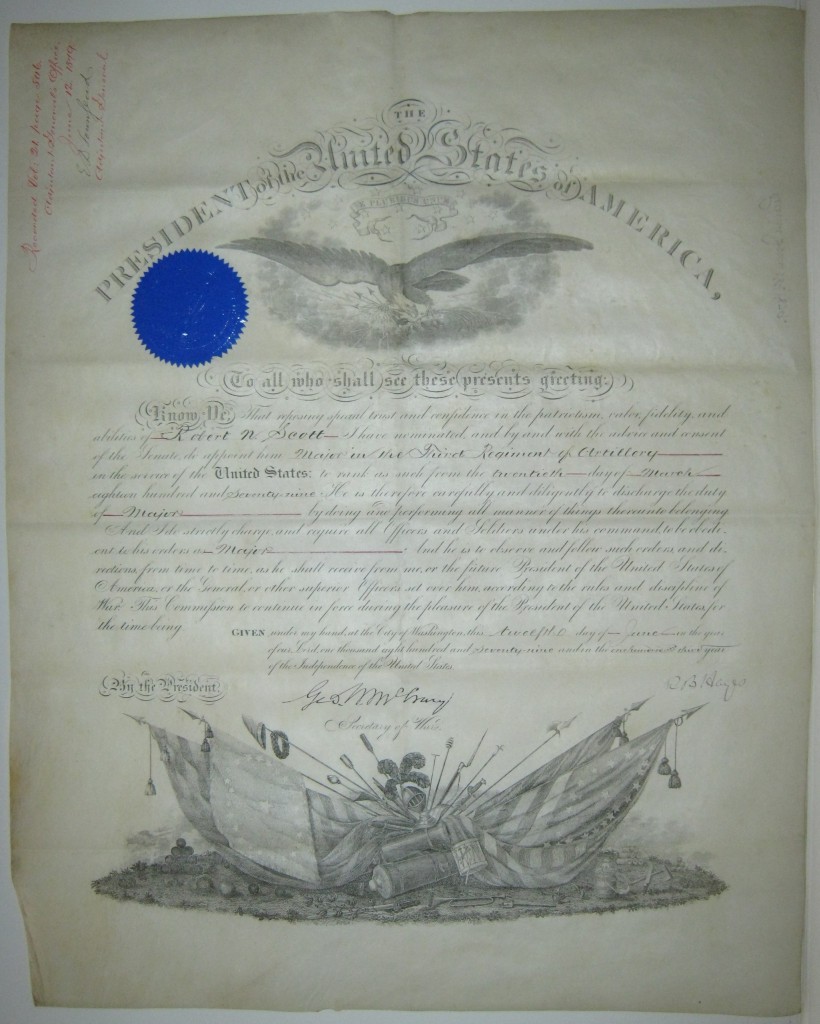 Recorded Vol. 21 page 506
Adjutant General's Office
June 12 1879.
E D Townsend
Adjutant General
THE
PRESIDENT of the United States of AMERICA,
E PLURIBUS UNUM
To all who shall see these presents greeting:
Know Ye, That reposing special trust and confidence in the patriotism, valor, fidelity, and
abilities of Robert N. Scott I have nominated, and by and with the advice and consent
of the Senate, do appoint him Major in the Third Regiment of Artillery
in the service of the United States: to rank as such from the twentieth day of March
eighteen hundred and seventy-nine. He is therefore carefully and diligently to discharge the duty
of Major by doing and performing all manner of things thereunto belonging.
And I do strictly charge, and require all Officers and Soldiers under his command, to be obedi-
ent to his orders as Major. And he is to observe and follow such orders, and di-
rections, from time to time, as he shall receive from me, or the future President of the United States of
America, or the General, or other superior Officers set over him, according to the rules and discipline of
War. This Commission to continue in force during the pleasure of the President of the United States, for
the time being.
GIVEN under my hand, at the City of Washington, this twelfth day of June in the year
of our Lord, one thousand eight hundred and seventy-nine and in the one hundred & third year
of the Independence of the United States.
By the President
R B Hayes
Geo W McCrary
Secretary of War.